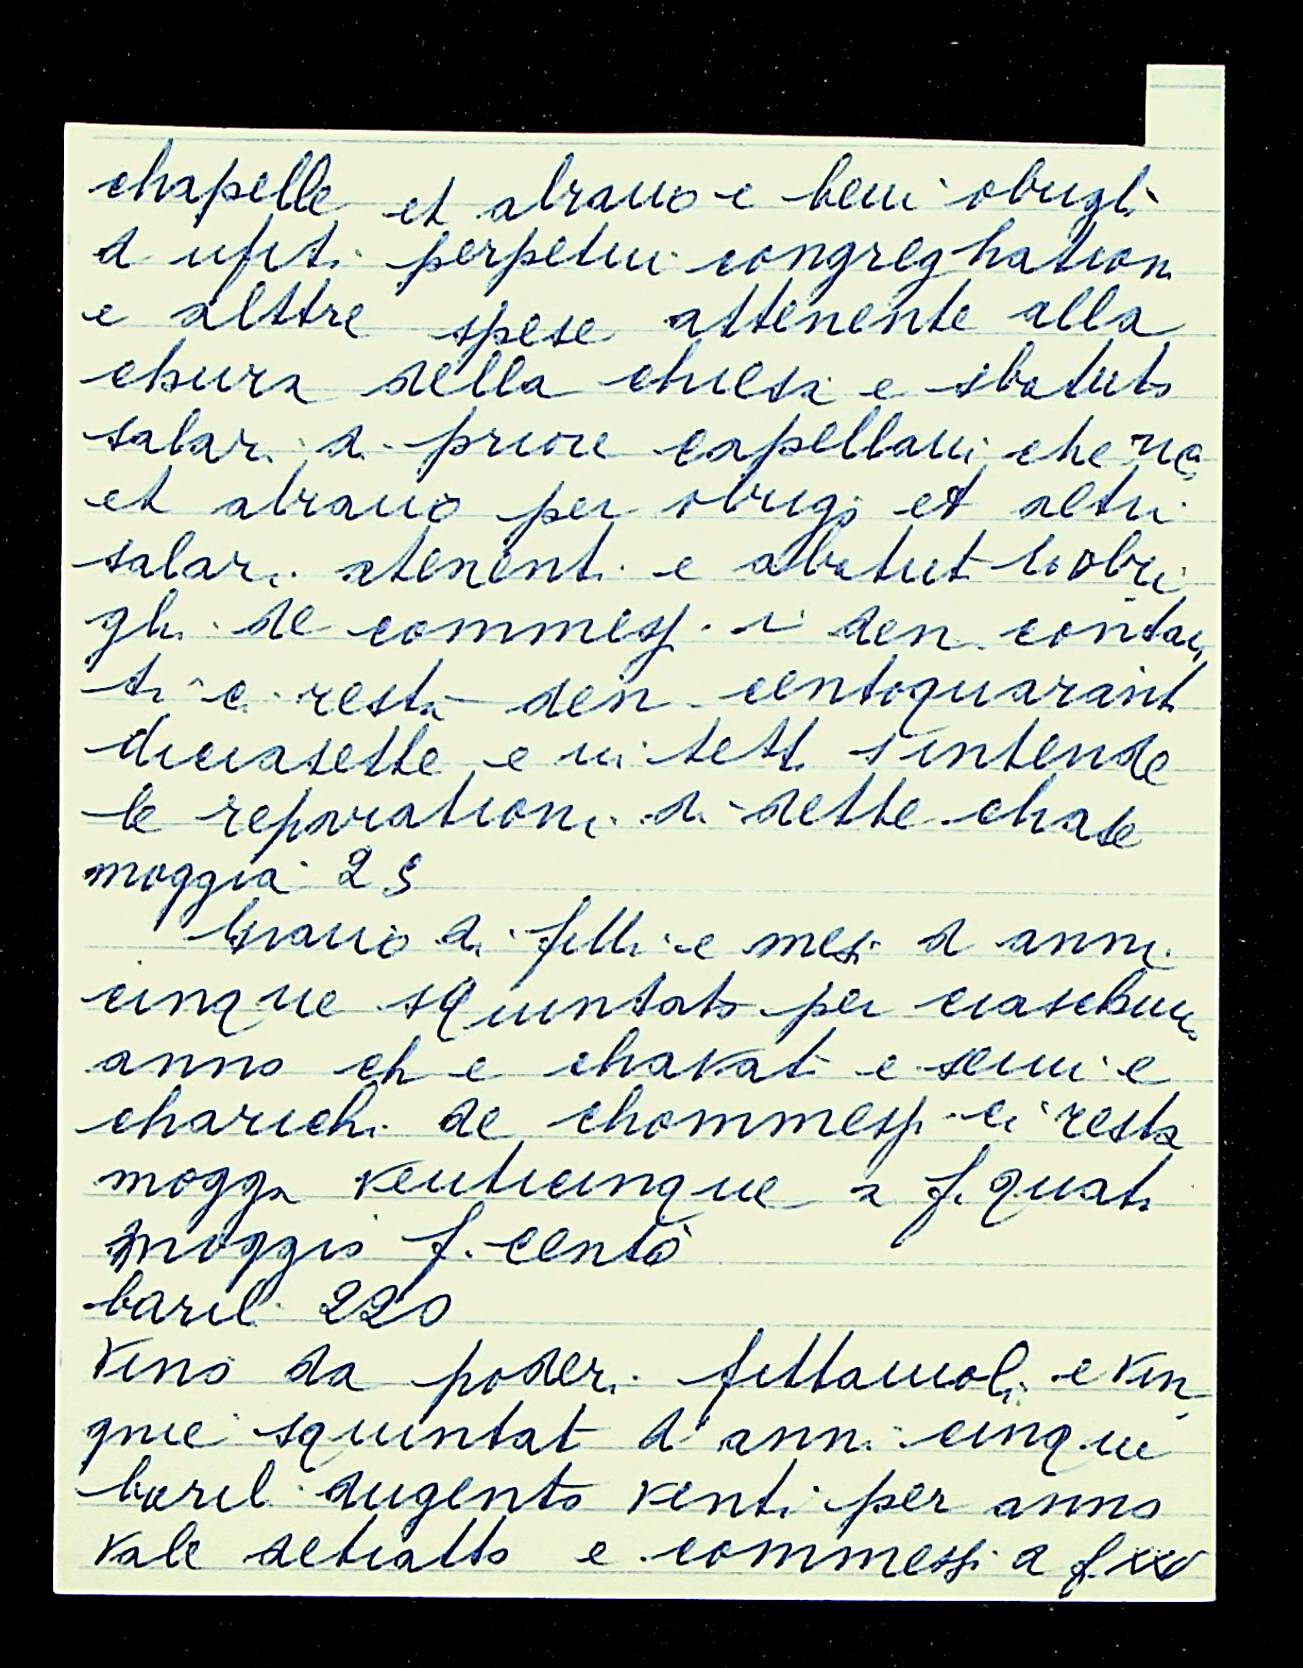 chapelle et alrano e beni obrigli
d ufiti perpetui congreghation
e alttre spese attenente alla
chura della chiesa e sbatuto
salari di priore capellani che ric
et alrano per obrigi et altri
salari atenenti e abatut lo obri
ghi de commessi i den contan
ti e resta den centoquarant
diciasette e in sett s intende
le reparationi di dette chase
moggia 25
Grano di fitti e mesi d anni
cinque squintato per ciaschuno
anno ch e chavati e semi e
charichi de chommessi ci resta
mogga venticinque a f. quatt
moggio f. cento
baril 220
Vino da poderi fittaiuoli e vin
gnie squintat d anni cinque
baril dugento venti per anno
vale detratto e commessi a f. xxv